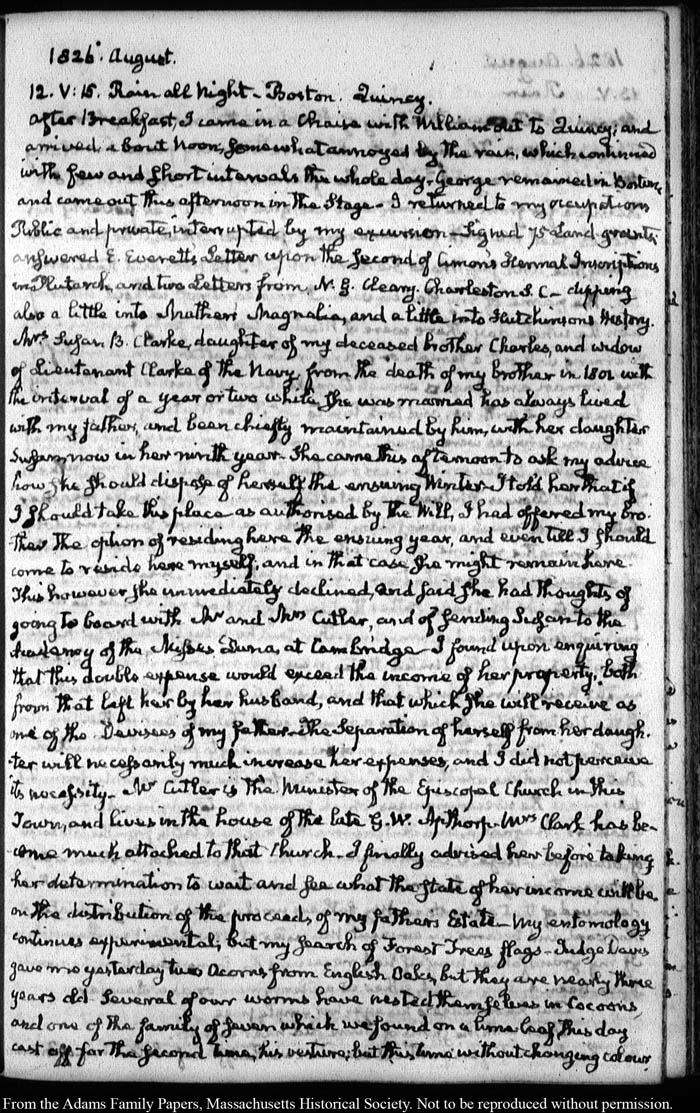 1826. August.
12. V: 15. Rain all Night - Boston. Quincy.
After Breakfast, I came in a Chaise with William out to Quincy; and
arrived about Noon, somewhat annoyed by the rain, which continued
with few and short intervals the whole day. George remained in Boston
and came out this afternoon in the Stage - I returned to my occupations
Public and private, interrupted by my excursion - Signed 75 Land-grants;
answered E. Everett's Letter upon the second of Cimon's Hermal Inscriptions
in Plutarch, and two Letters from N. G. Cleary. Charleston S. C - dipping
also a little into Mather's Magnalia, and a little into Hutchinson's History.
Mrs Susan B. Clarke, daughter of my deceased brother Charles, and widow
of Lieutenant Clarke of the Navy, from the death of my brother in 1801 with
the interval of a year or two while she was married has always lived
with my father, and been chiefly maintained by him, with her daughter
Susan, now in her ninth year. She came this afternoon to ask my advice
how she should dispose of herself the ensuing Winter. I told her that if
I should take this place as authorised by the Will, I had offered my bro-
ther the option of residing here the ensuing year, and even till I should
come to reside here myself; and in that case she might remain here.
This however she immediately declined, and said she had thoughts of
going to board with Mr and Mrs Cutler, and of sending Susan to the
Academy of the Misses Dana, at Cambridge. I found upon enquiring
that this double expense would exceed the income of her property; both
from that left her by her husband, and that which she will receive as
one of the Devisees of my father. The Separation of herself from her daugh-
ter will necessarily much increase her expenses, and I did not perceive
its necessity - Mr Cutler is the Minister of the Episcopal Church in this
Town, and lives in the house of the late G. W. Apthorp. Mrs Clark has be-
come much attached to that Church. I finally advised her before taking
her determination to wait and see what the state of her income will be
on the distribution of the proceeds of my father's Estate - My entomology
continues experimental; but my search of Forest Trees flags - Judge Davis
gave me yesterday two Acorns from English Oaks, but they are nearly three
years old. Several of our worms have nested themselves in Cocoons,
and one of the family of seven which we found on a lime leaf, this day
cast off for the second time, his vesture; but this time without changing colour
From the Adams Family Papers, Massachusetts Historical Society. Not to be reproduced without permission.